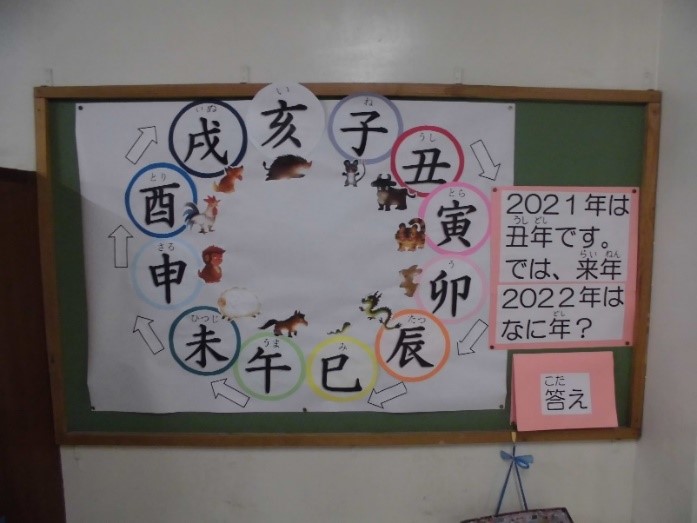 い
亥
ね
子
うし
丑
とら
寅
う
卯
たつ
辰
み
巳
うま
午
ひつじ
未
さる
申
とり
酉
いぬ
戌
2021年は
うし どし
丑年です。
らい ねん
では、来年
2022年は
どし
なに年？
こた
答え